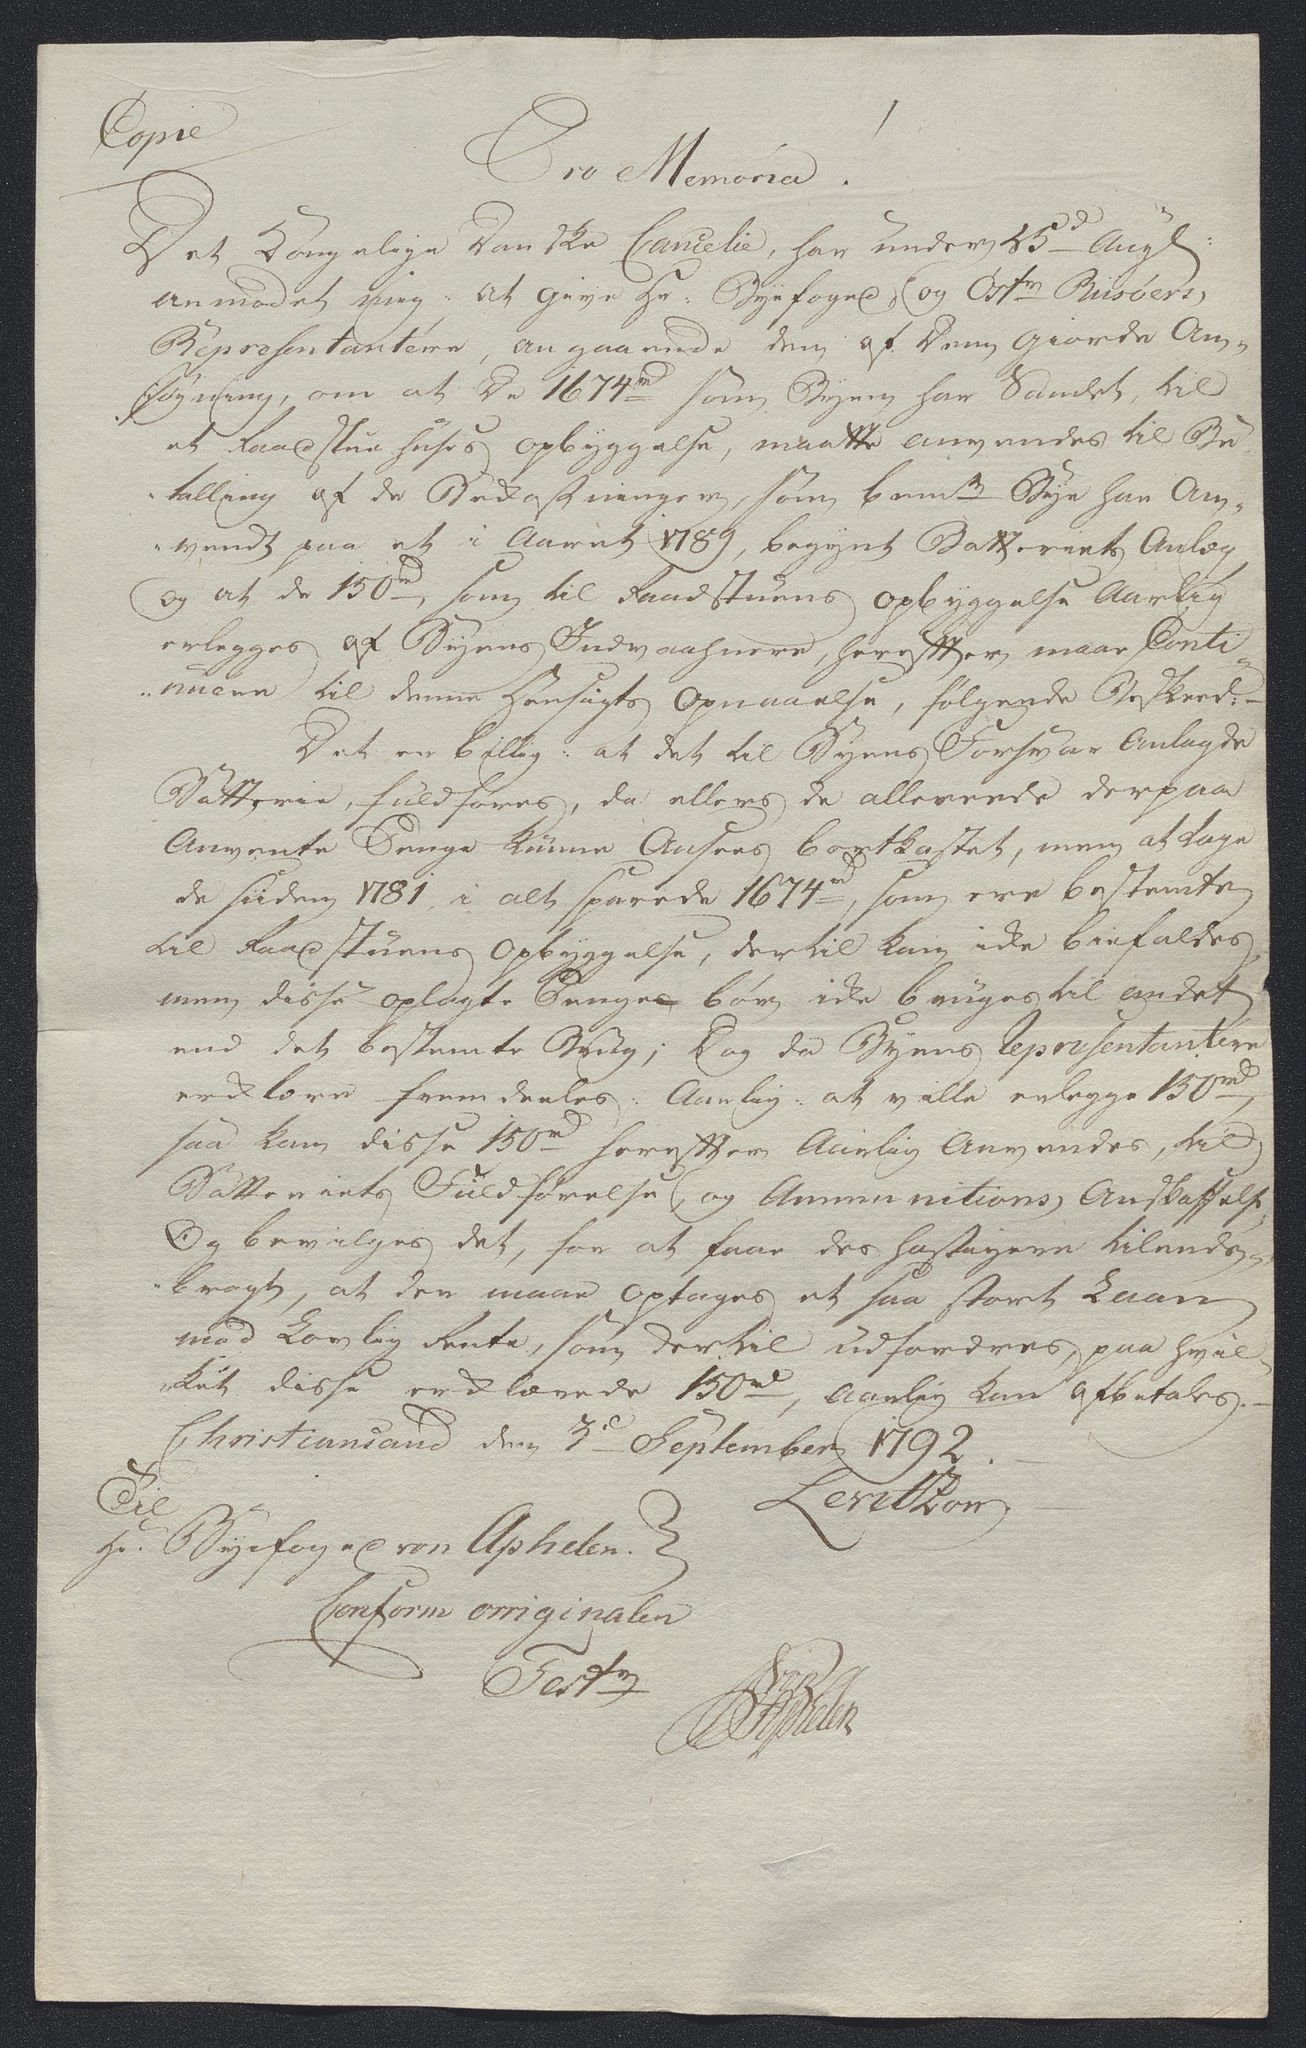 Copie
Pro Memoria.
Det Kongelige Danske Cancelie, har under 25d Aug:
anmodet mig: at give Hr: Byefoged og Østr Riisøers
Repræsentantere, angaaende den af dem giorde An„
søgning, om at de 1674rd som Byen har Samlet, til
et Raadstue Huses opbyggelse, maatte anvendes til Be
„talling af de Bekostninger, som bemte Bye har An„
„vendt paa et i Aaret 1789, begynt Batteriets Anlæg
og at de 150rd, som til Raadstuens opbyggelse Aarlig
erlegges af Byens Indvaahnere, herefter maae Conti„
„nuere til denne Hensigts Opnaaelse, følgende Beskeed:
Det er billig: at det til Byens Forsvar Anlagde
Batterie, fuldføres, da ellers de allereede derpaa
Anvente Penge kunne Ansees bortkastet, men at tage
de siiden 1781 i alt sparede 1674rd, som ere bestemte
til Raadstuens Opbyggelse, dertil kan ikke biefaldes,
men disse oplagte Penge bør ikke bruges til andet
end det bestemte Brug; Dog da Byens Repræsentantere
erklære fremdeeles: Aarlig: at ville erlegge 150rd,
saa kan disse 150rd herefter Aarlig Anvendes, til
Batteriets Fuldførelse, og Ammunitions Anskaffelse,
Og bevilges det, for at faae des hastigere tilends„
„bragt, at der maae optages et saa stort Laan
mod Lovlig Rente, som dertil udfordres, paa hvil„
„ket disse erklærede 150rd, aarlig kan afbetales.
Christiansand den 3d September 1792.
Levetzow
Til
Hr: Byefoged von Aphelen.
Conform orriginalen
Testr
Aphelen